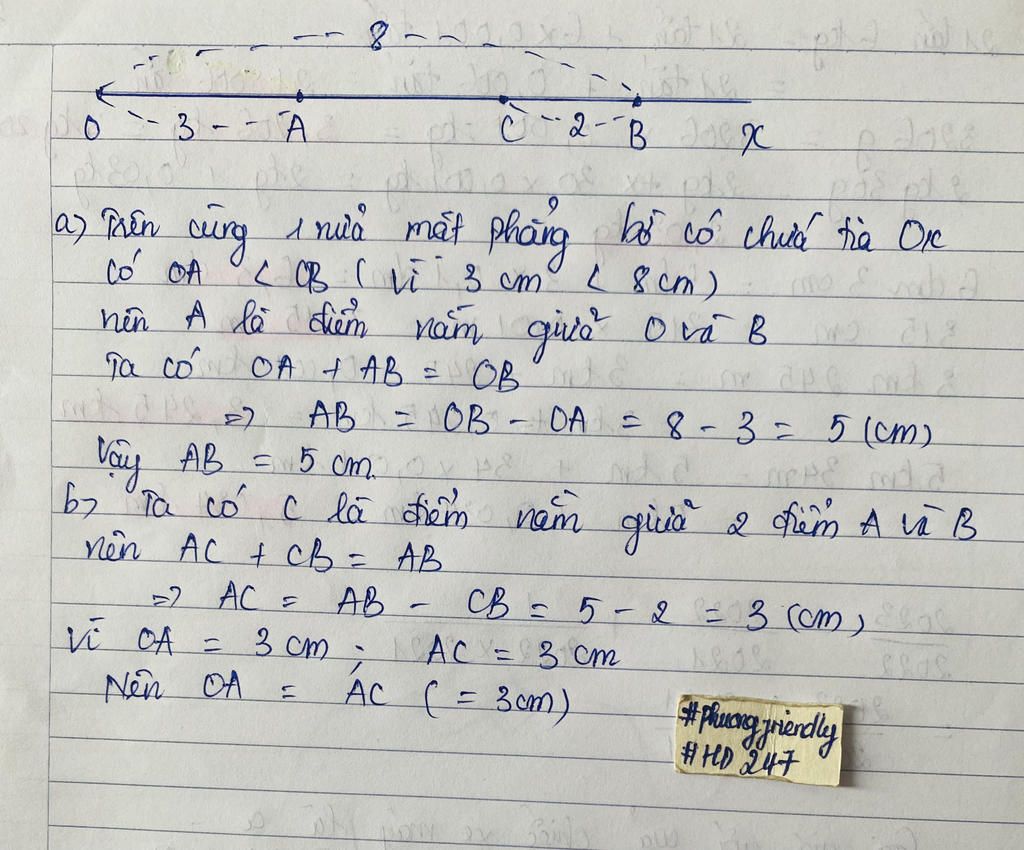 8
O 3 A C 2 B x
a) Trên cùng 1 nửa mặt phẳng bờ có chứa tia Ox
có OA < OB ( vì 3 cm < 8 cm )
nên A là điểm nằm giữa O và B
Ta có OA + AB = OB
=> AB = OB - OA = 8 - 3 = 5 (cm)
Vậy AB = 5 cm.
b) Ta có C là điểm nằm giữa 2 điểm A và B
nên AC + CB = AB
=> AC = AB - CB = 5 - 2 = 3 (cm)
Vì OA = 3 cm ; AC = 3 cm
Nên OA = AC ( = 3cm )
#phuongfriendly
#HD 247